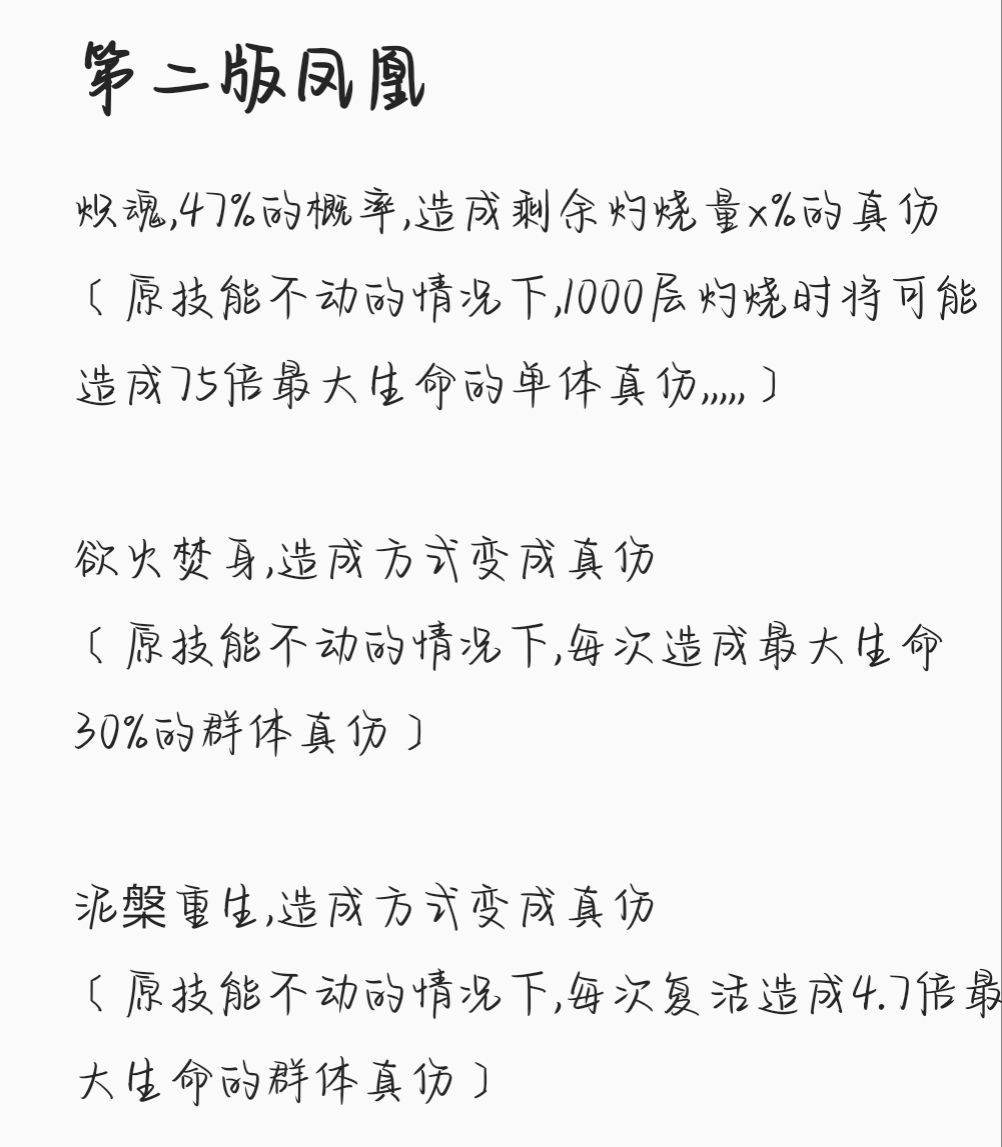 第二版凤凰
炽魂,47%的概率,造成剩余灼烧量x%的真伤
〔原技能不动的情况下,1000层灼烧时将可能
造成75倍最大生命的单体真伤,,,,,〕
欲火焚身,造成方式变成真伤
〔原技能不动的情况下,每次造成最大生命
30%的群体真伤〕
泥槃重生,造成方式变成真伤
〔原技能不动的情况下,每次复活造成4.7倍最
大生命的群体真伤〕